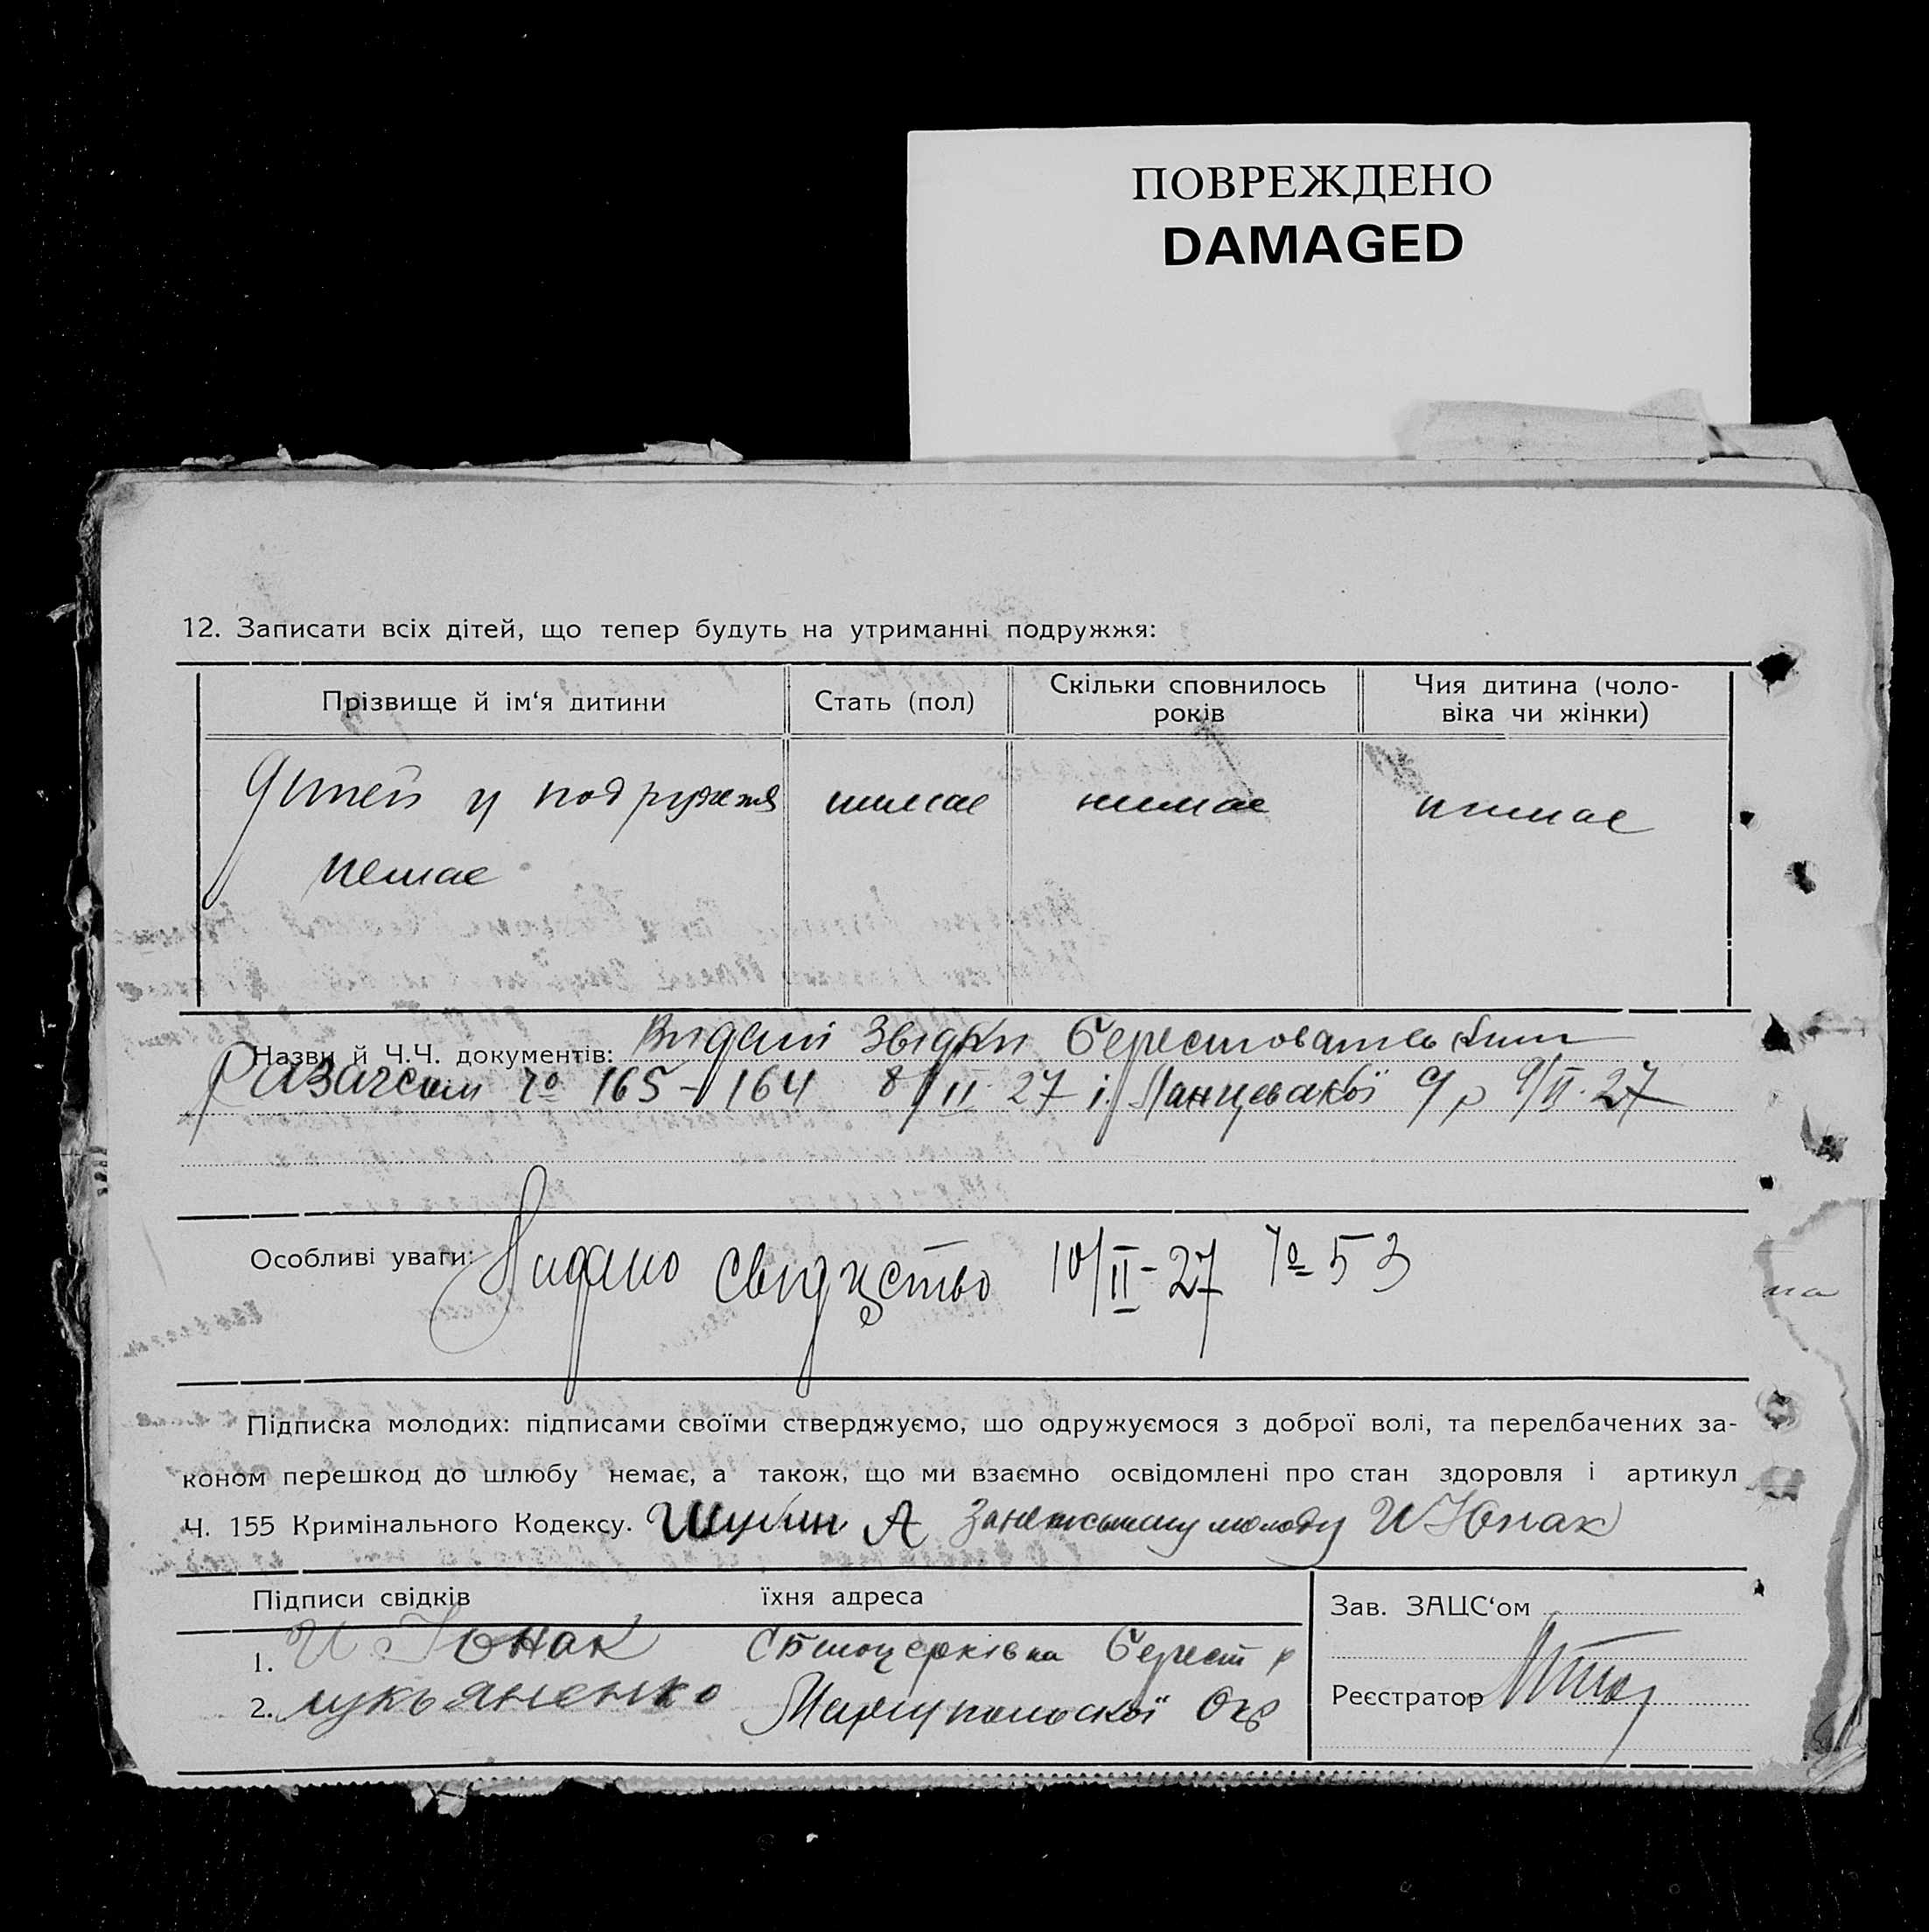 ПОВРЕЖДЕНО
DAMAGED
12. Записати всіх дітей, що тепер будуть на утриманні подружжя:
Прізвище й ім‘я дитини
Стать (пол)
Скільки сповнилось
років
Чия дитина (чоло-
віка чи жінки)
Дитей у подружжя
немає
нимає
нимає
нимає
Назви й Ч.Ч. документів: Видані Звідки
№ 165-164 8/II 27 і
9/II 27
Особливі уваги: Видано свидцство 10/II-27 № 53
Підписка молодих: підписами своїми стверджуємо, що одружуємося з доброї волі, та передбачених за-
коном перешкод до шлюбу немає, а також, що ми взаємно освідомлені про стан здоровля і артикул
Ч. 155 Кримінального Кодексу. А молоду И Юнак
Підписи свідків
їхня адреса
Зав. ЗАЦС‘ом
1. И Юнак Берест р
2. лукьяненко Маріупольскої Окр
Реєстратор